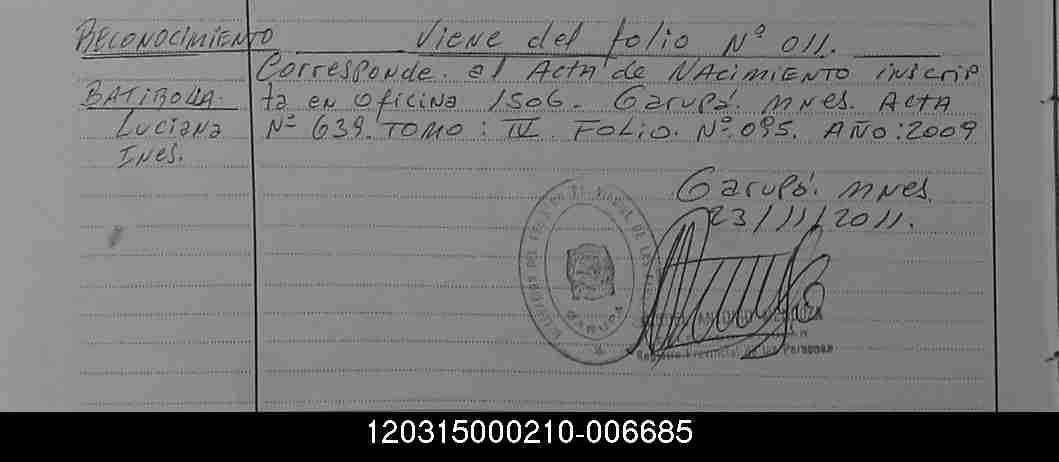 RECONOCIMIENTO
BATIROLLA
Luciana
Ines.
Viene del folio Nº 011.
Corresponde al Acta de NACIMIENTO inscrip
ta en oficina 1506. Garupá. MNES. ACTA
Nº 639. TOMO: IV. FOLIO. Nº 095. AÑO: 2009
Garupá. MNES.
23/11/2011.
GARUPA
Registro Provincial de las Personas
120315000210-006685